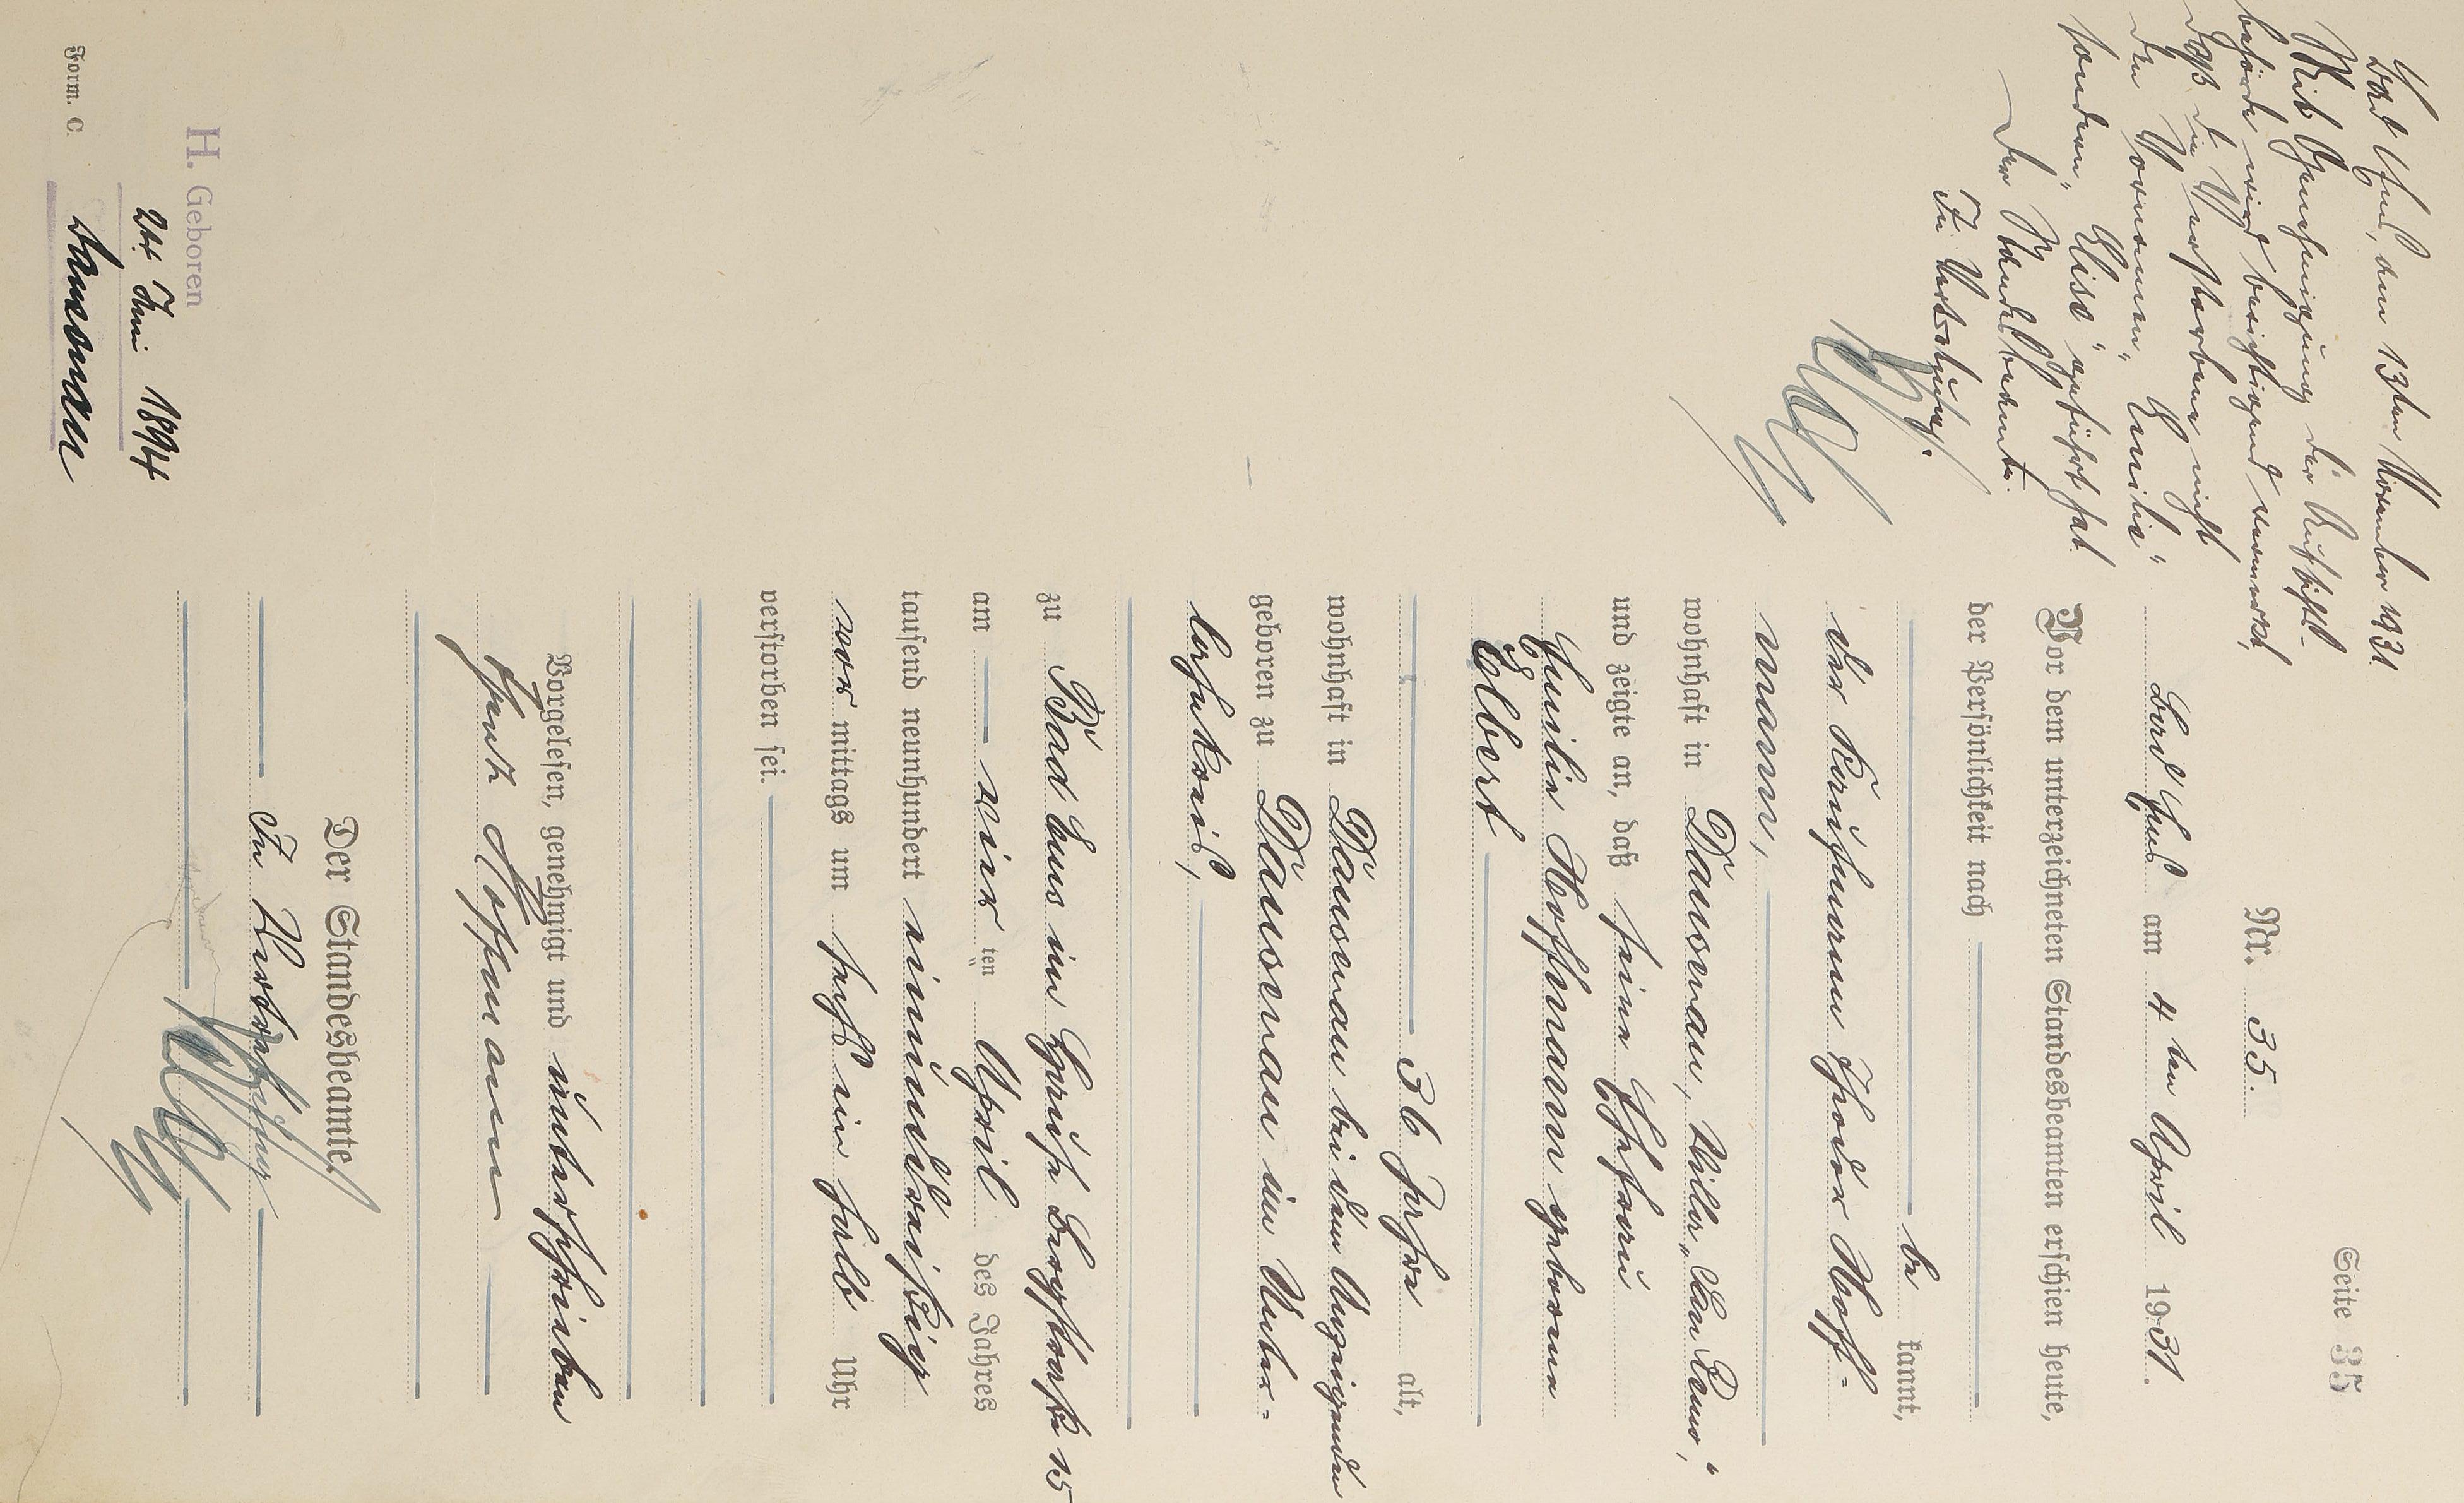 Seite 35
Nr. 35.
Bad Ems am 4 ten April 1931.
Vor dem unterzeichneten Standesbeamten erschien heute,
der Persönlichkeit nach
be kannt,
der Kaufmann Hoff-
mann,
wohnhaft in Dausenau, Villa
und zeigte an, daß seine Ehefrau
Emilie Hoffmann geborene
Elbert
36 Jahre alt,
wohnhaft in Dausenau bei dem Anzeigenden
geboren zu Dausenau im Unter-
lahnkreis,
zu Bad Ems im Hause Bergstraße 15
am vier ten April des Jahres
tausend neunhundert einunddreißig
vor mittags um sechs ein halb Uhr
verstorben sei.
Vorgelesen, genehmigt und unterschrieben
Hoffmann
Der Standesbeamte
In Vertretung
Bad Ems, den 13ten November 1931
Mit Genehmigung der Aufsichts-
behörde wird berichtigend vermerkt,
daß die Verstorbene nicht
den Vornamen „Emilie"
sondern „Elise" geführt hat.
Der Standesbeamte.
In Vertretung.
H. Geboren
24 Juni 1894
Dausenau
Form. C.